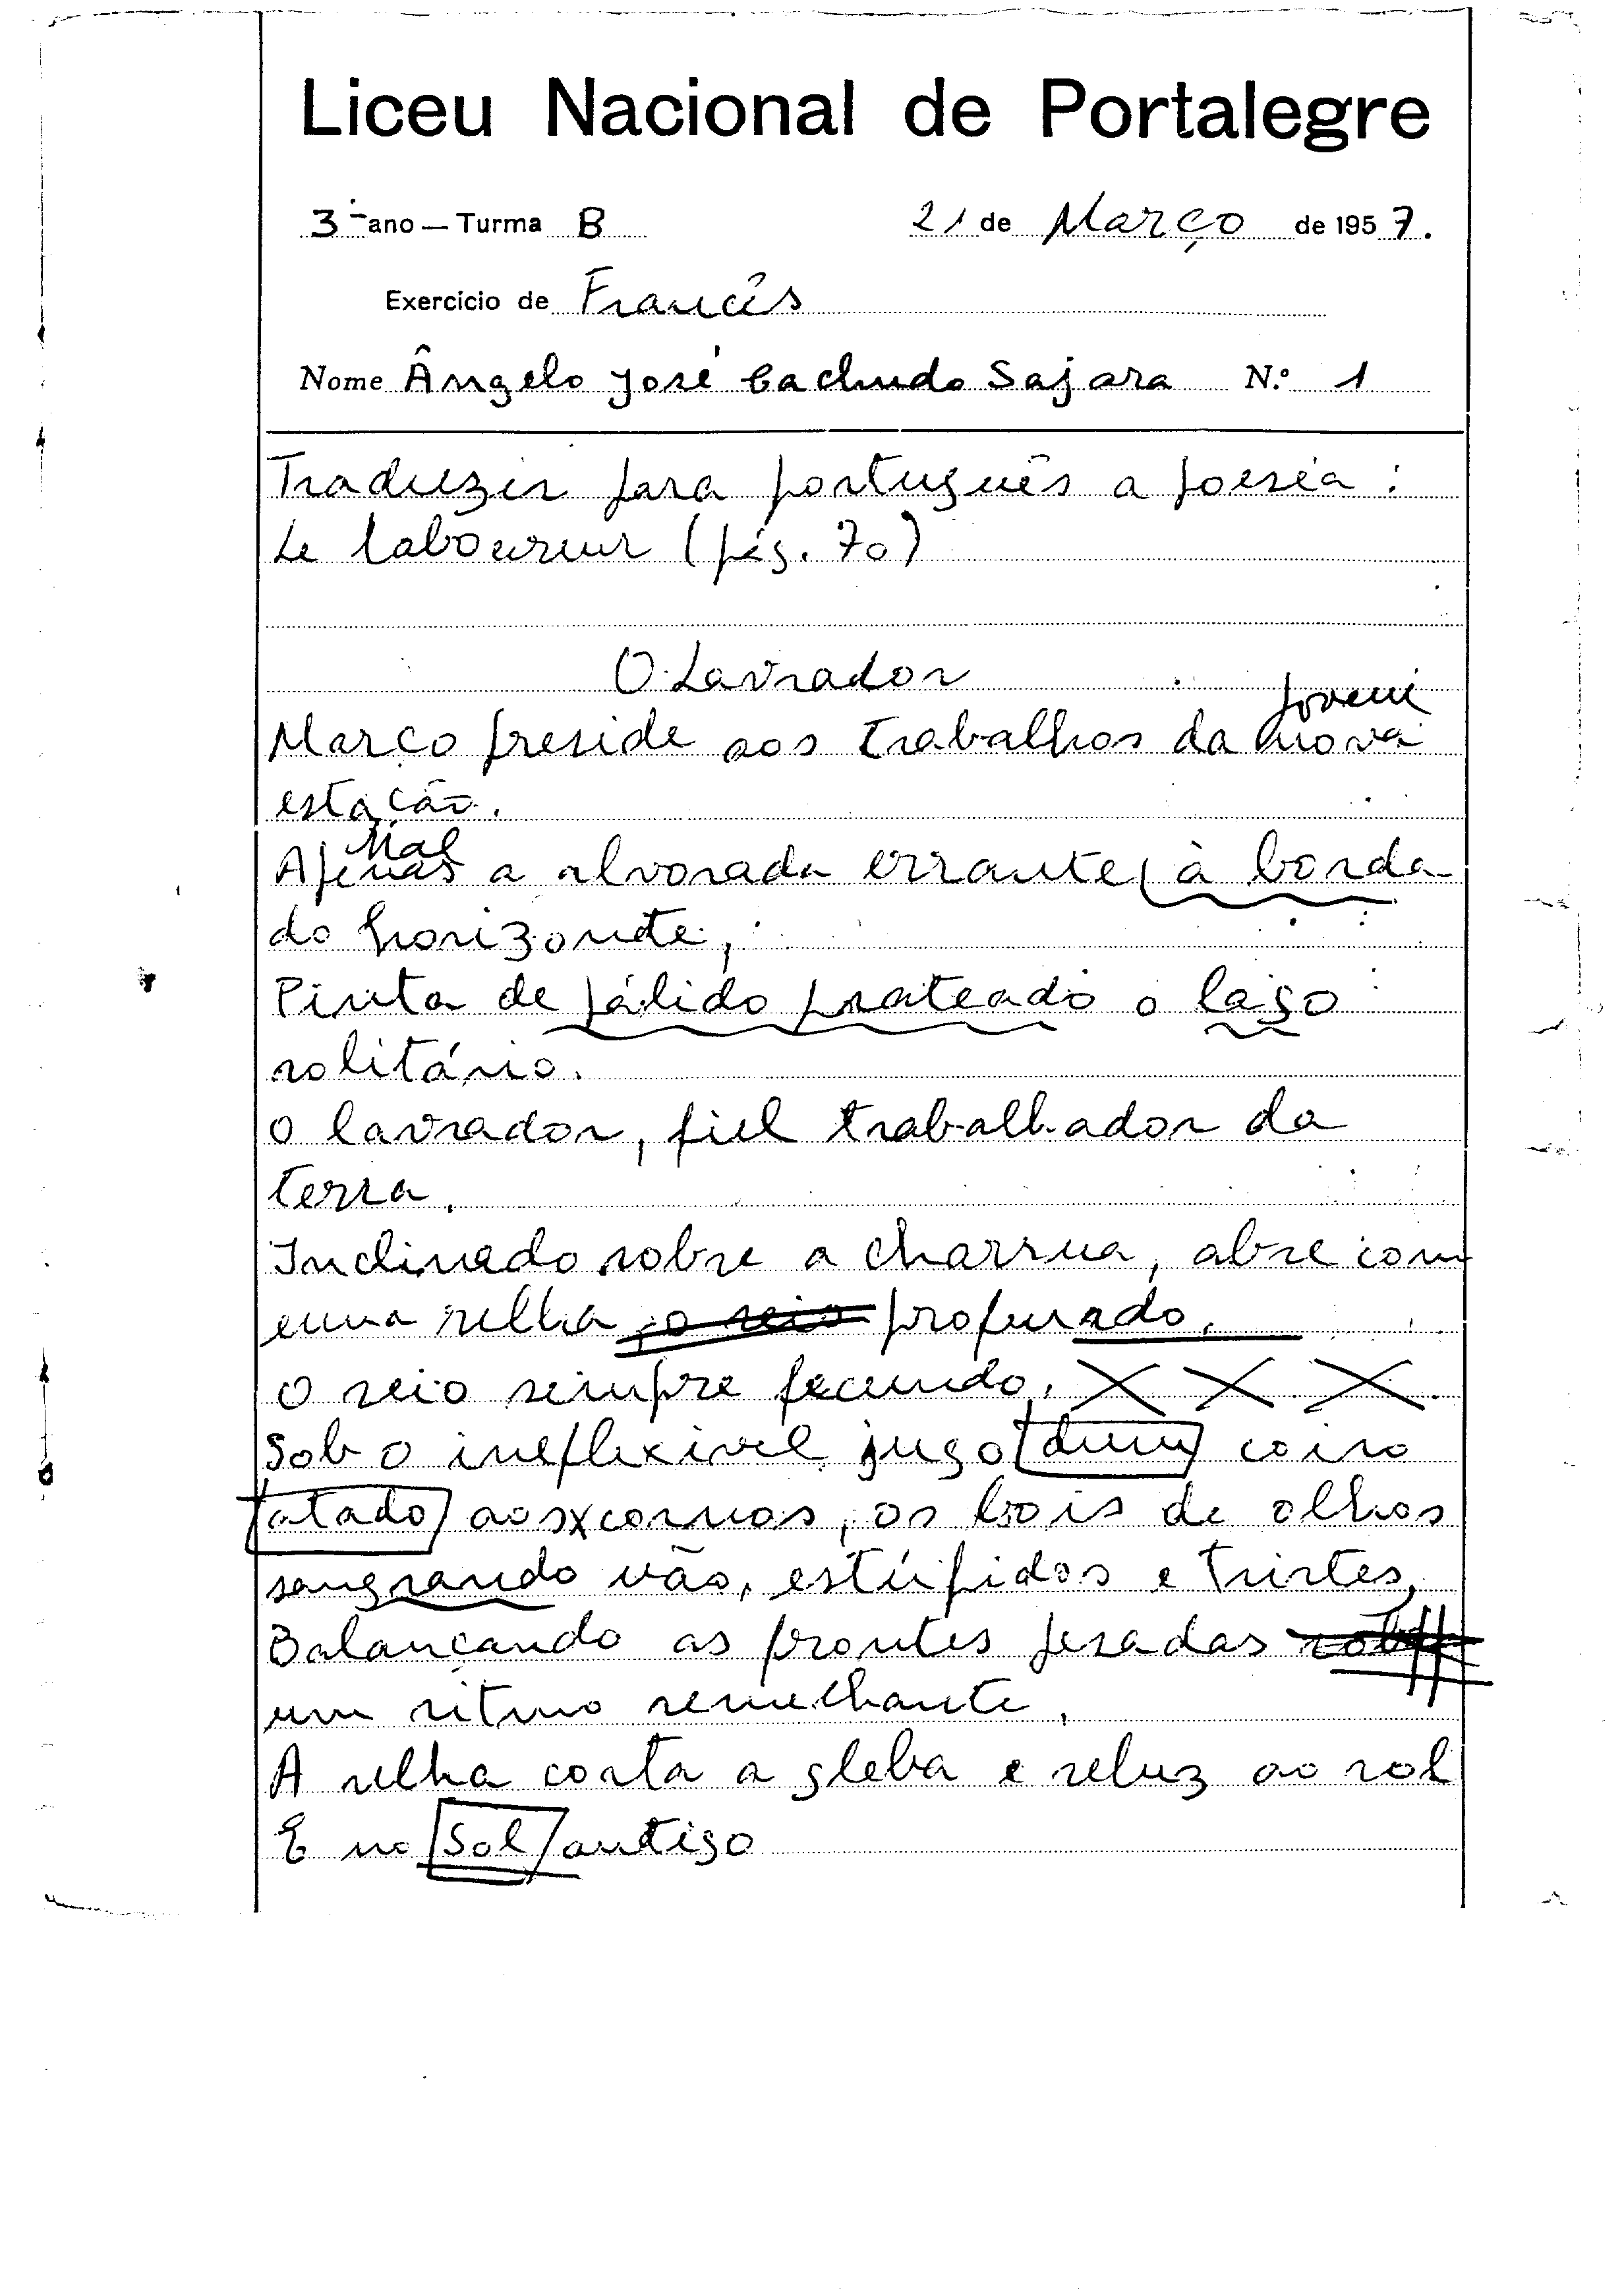 Liceu Nacional de Portalegre
3º ano — Turma B 21 de Março de 1957.
Exercício de Francês
Nome Ângelo José Cachudo Sajara N.º 1
Traduzir para português a poesia:
Le laboureur (pág. 70)
O Lavrador
jovem
Março preside aos trabalhos da nova
estação.
Mal
Apenas a alvorada errante, à borda
do horizonte,
Pinta de pálido prateado o lago
solitário.
O lavrador, fiel trabalhador da
terra,
Inclinado sobre a charrua, abre com
uma relha o seio profundo.
O seio sempre fecundo.
Sob o inflexivel jugo dum coiro
atado aos cornos, os bois de olhos
sangrando vão, estúpidos e tristes,
Balançando as frontes pesadas sob
um ritmo semelhante,
A relha corta a gleba e reluz ao sol
E no Sol antigo